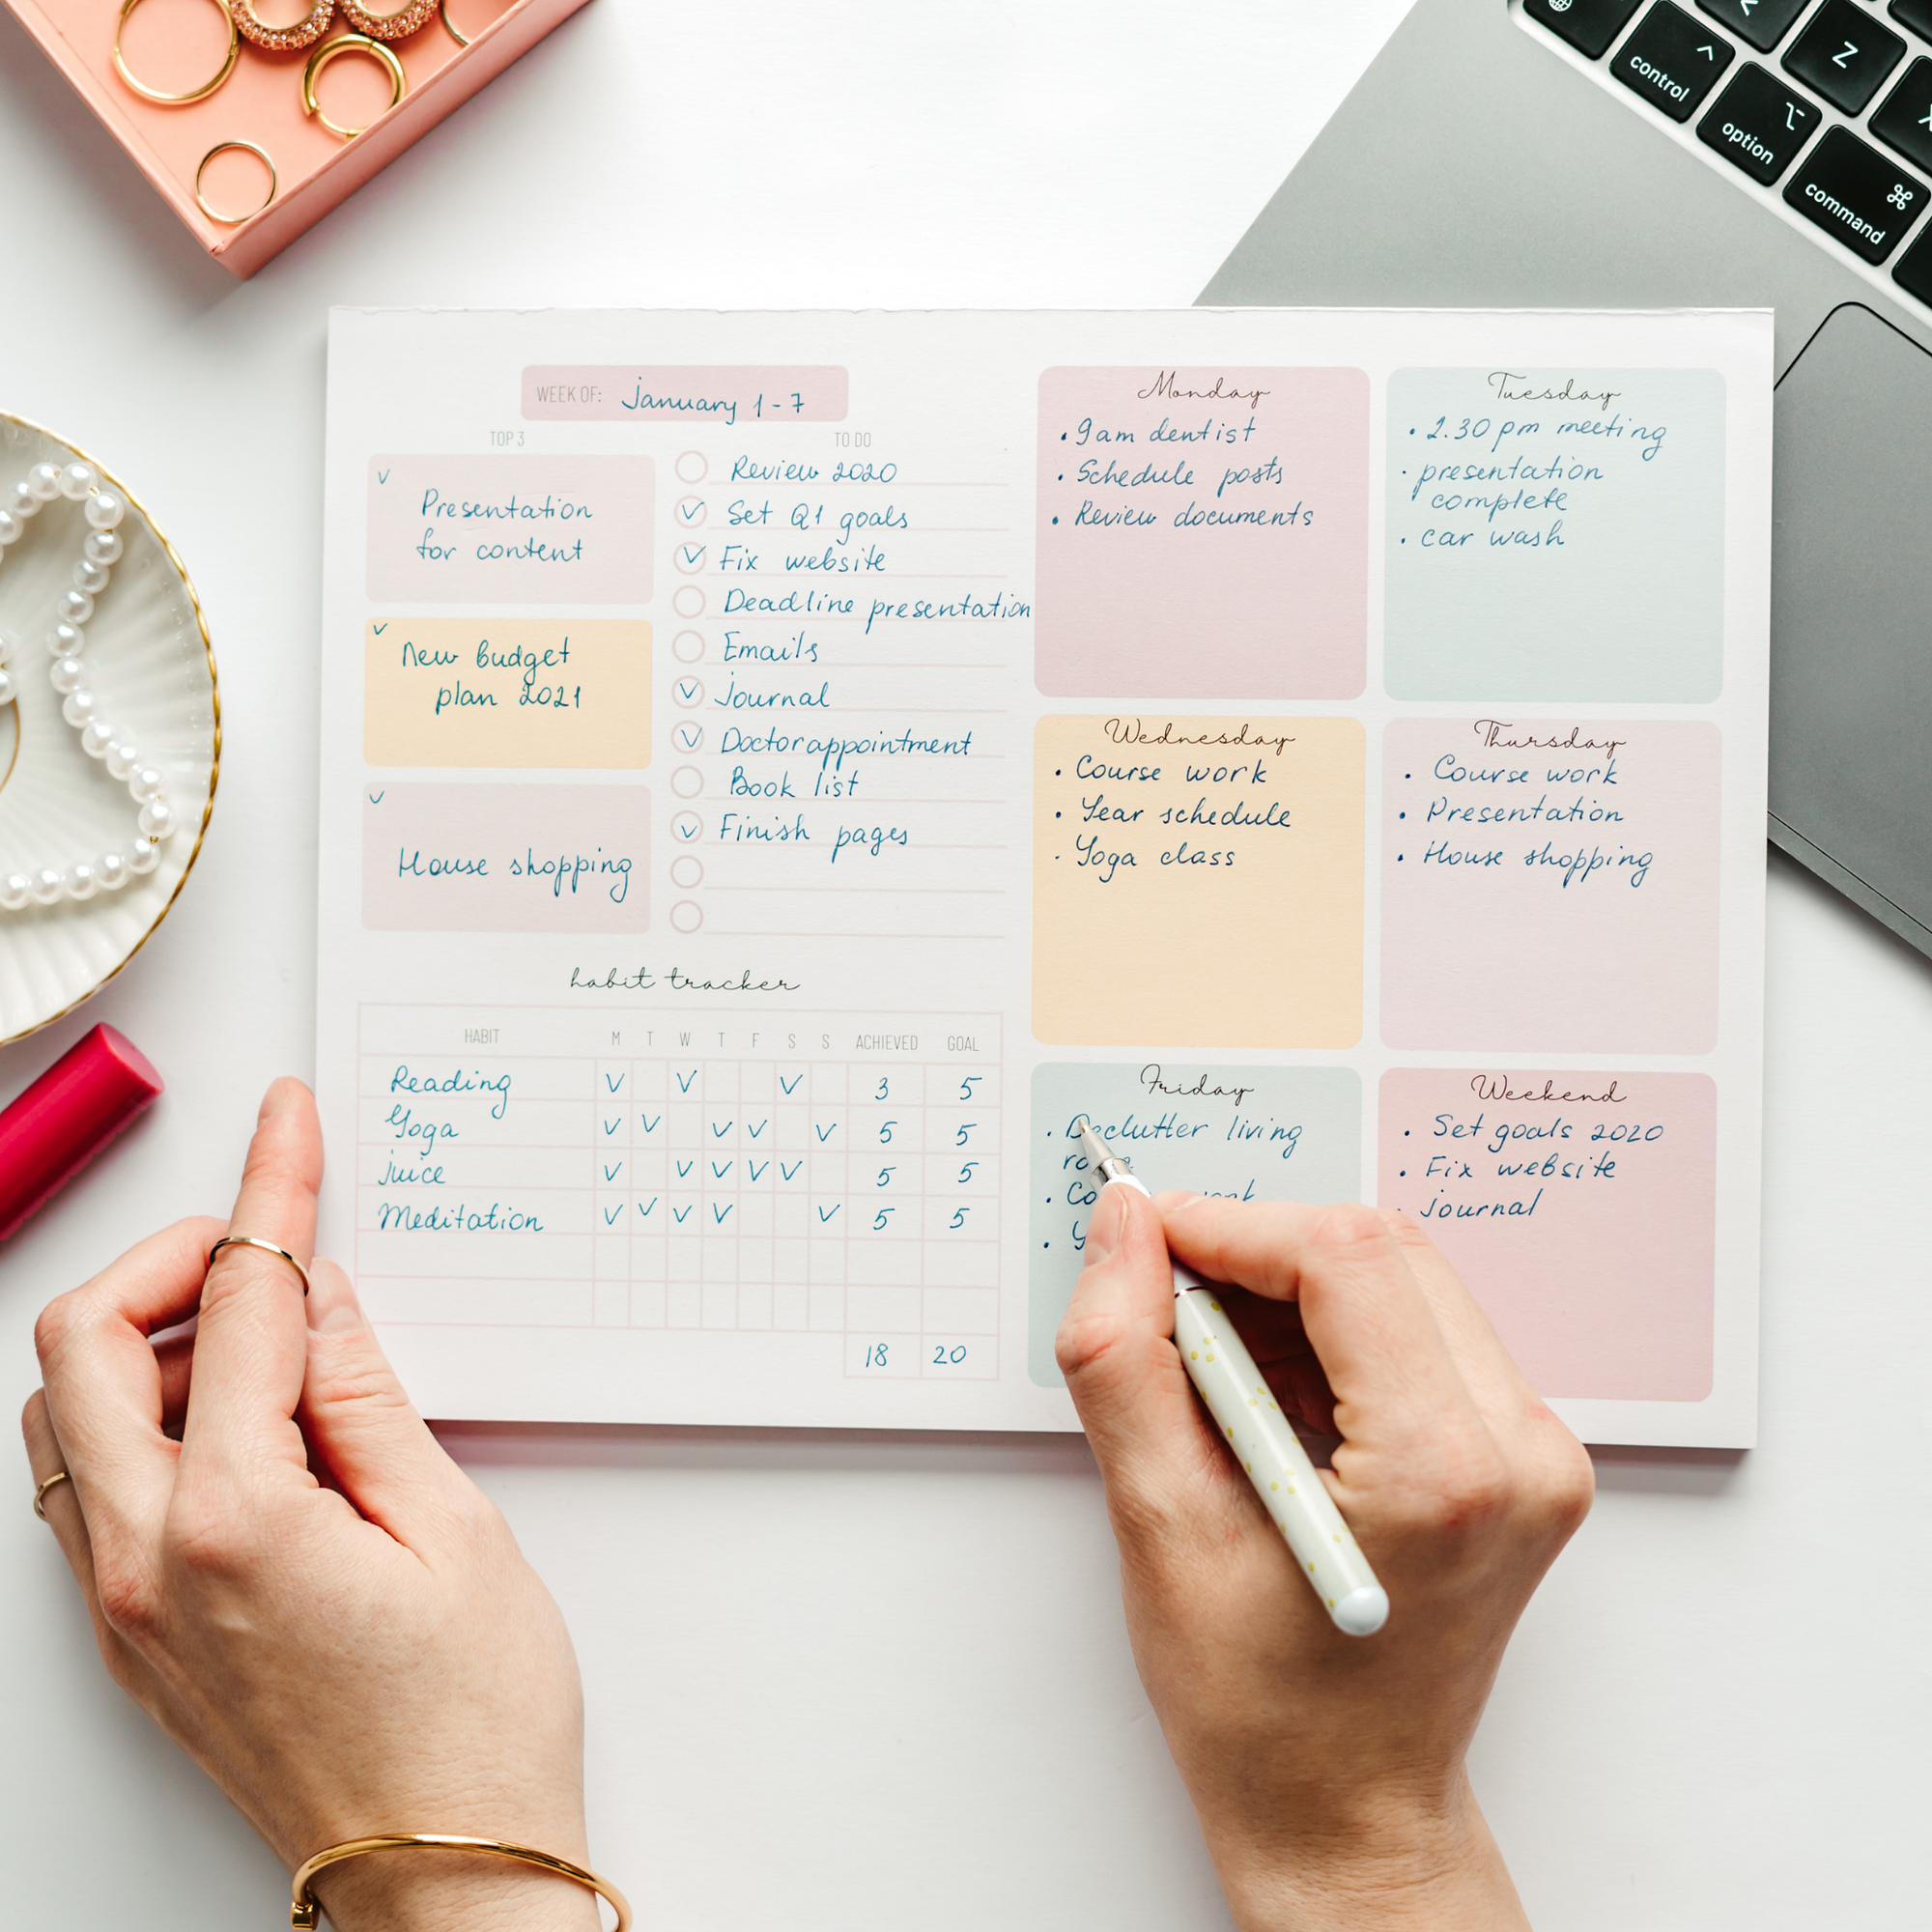 control
option
command
Z
WEEK OF: January 1-7
TOP 3
Presentation
for content
New budget
plan 2021
House shopping
TO DO
Review 2020
Set Q1 goals
Fix website
Deadline presentation
Emails
Journal
Doctor appointment
Book list
Finish pages
habit tracker
HABIT M T W T F S S ACHIEVED GOAL
Reading V V V 3 5
Yoga V V V V V 5 5
Juice V V V V V 5 5
Meditation V V V V V 5 5
18 20
Monday
• 9am dentist
• Schedule posts
• Review documents
Tuesday
• 2.30 pm meeting
• presentation
complete
• car wash
Wednesday
• Course work
• Year schedule
• Yoga class
Thursday
• Course work
• Presentation
• House shopping
Friday
• Declutter living
Weekend
• Set goals 2020
• Fix website
• Journal